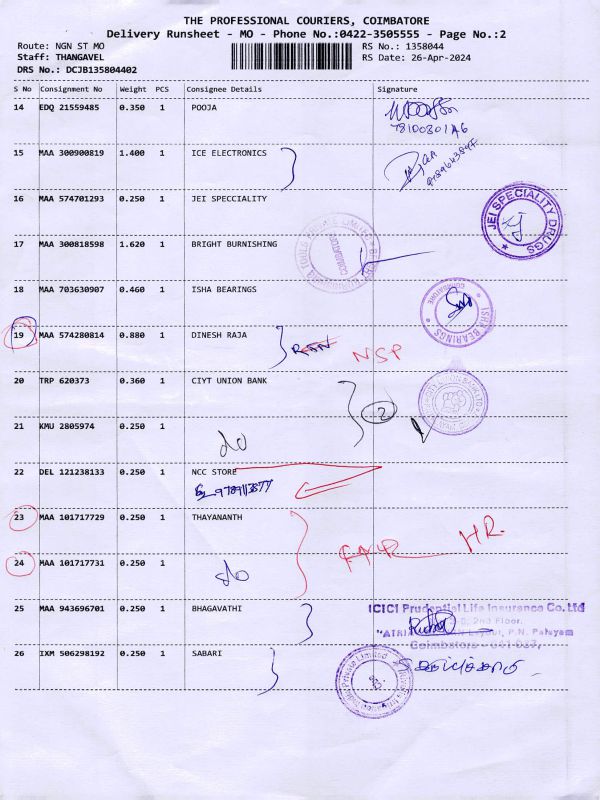 THE PROFESSIONAL COURIERS, COIMBATORE
Delivery Runsheet - MO - Phone No.:0422-3505555 - Page No.:2
Route: NGN ST MO RS No.: 1358044
Staff: THANGAVEL RS Date: 26-Apr-2024
DRS No.: DCJB135804402
S No Consignment No Weight PCS Consignee Details Signature
14 EDQ 21559485 0.350 1 POOJA
15 MAA 300900819 1.400 1 ICE ELECTRONICS
16 MAA 574701293 0.250 1 JEI SPECCIALITY
JEI SPECIALITY DRUGS
17 MAA 300818598 1.620 1 BRIGHT BURNISHING
COIMBATORE
18 MAA 703630907 0.460 1 ISHA BEARINGS
COIMBATORE
ISHA BEARINGS
19 MAA 574280814 0.880 1 DINESH RAJA
NSP
20 TRP 620373 0.360 1 CIYT UNION BANK
2
21 KMU 2805974 0.250 1
do
22 DEL 121238133 0.250 1 NCC STORE
23 MAA 101717729 0.250 1 THAYANANTH
HR.
24 MAA 101717731 0.250 1
do
25 MAA 943696701 0.250 1 BHAGAVATHI
ICICI Prudential Life Insurance Co. Ltd
2nd Floor.
P.N. Palayam
Coimbatore - 641 037,
26 IXM 506298192 0.250 1 SABARI
Private Limited